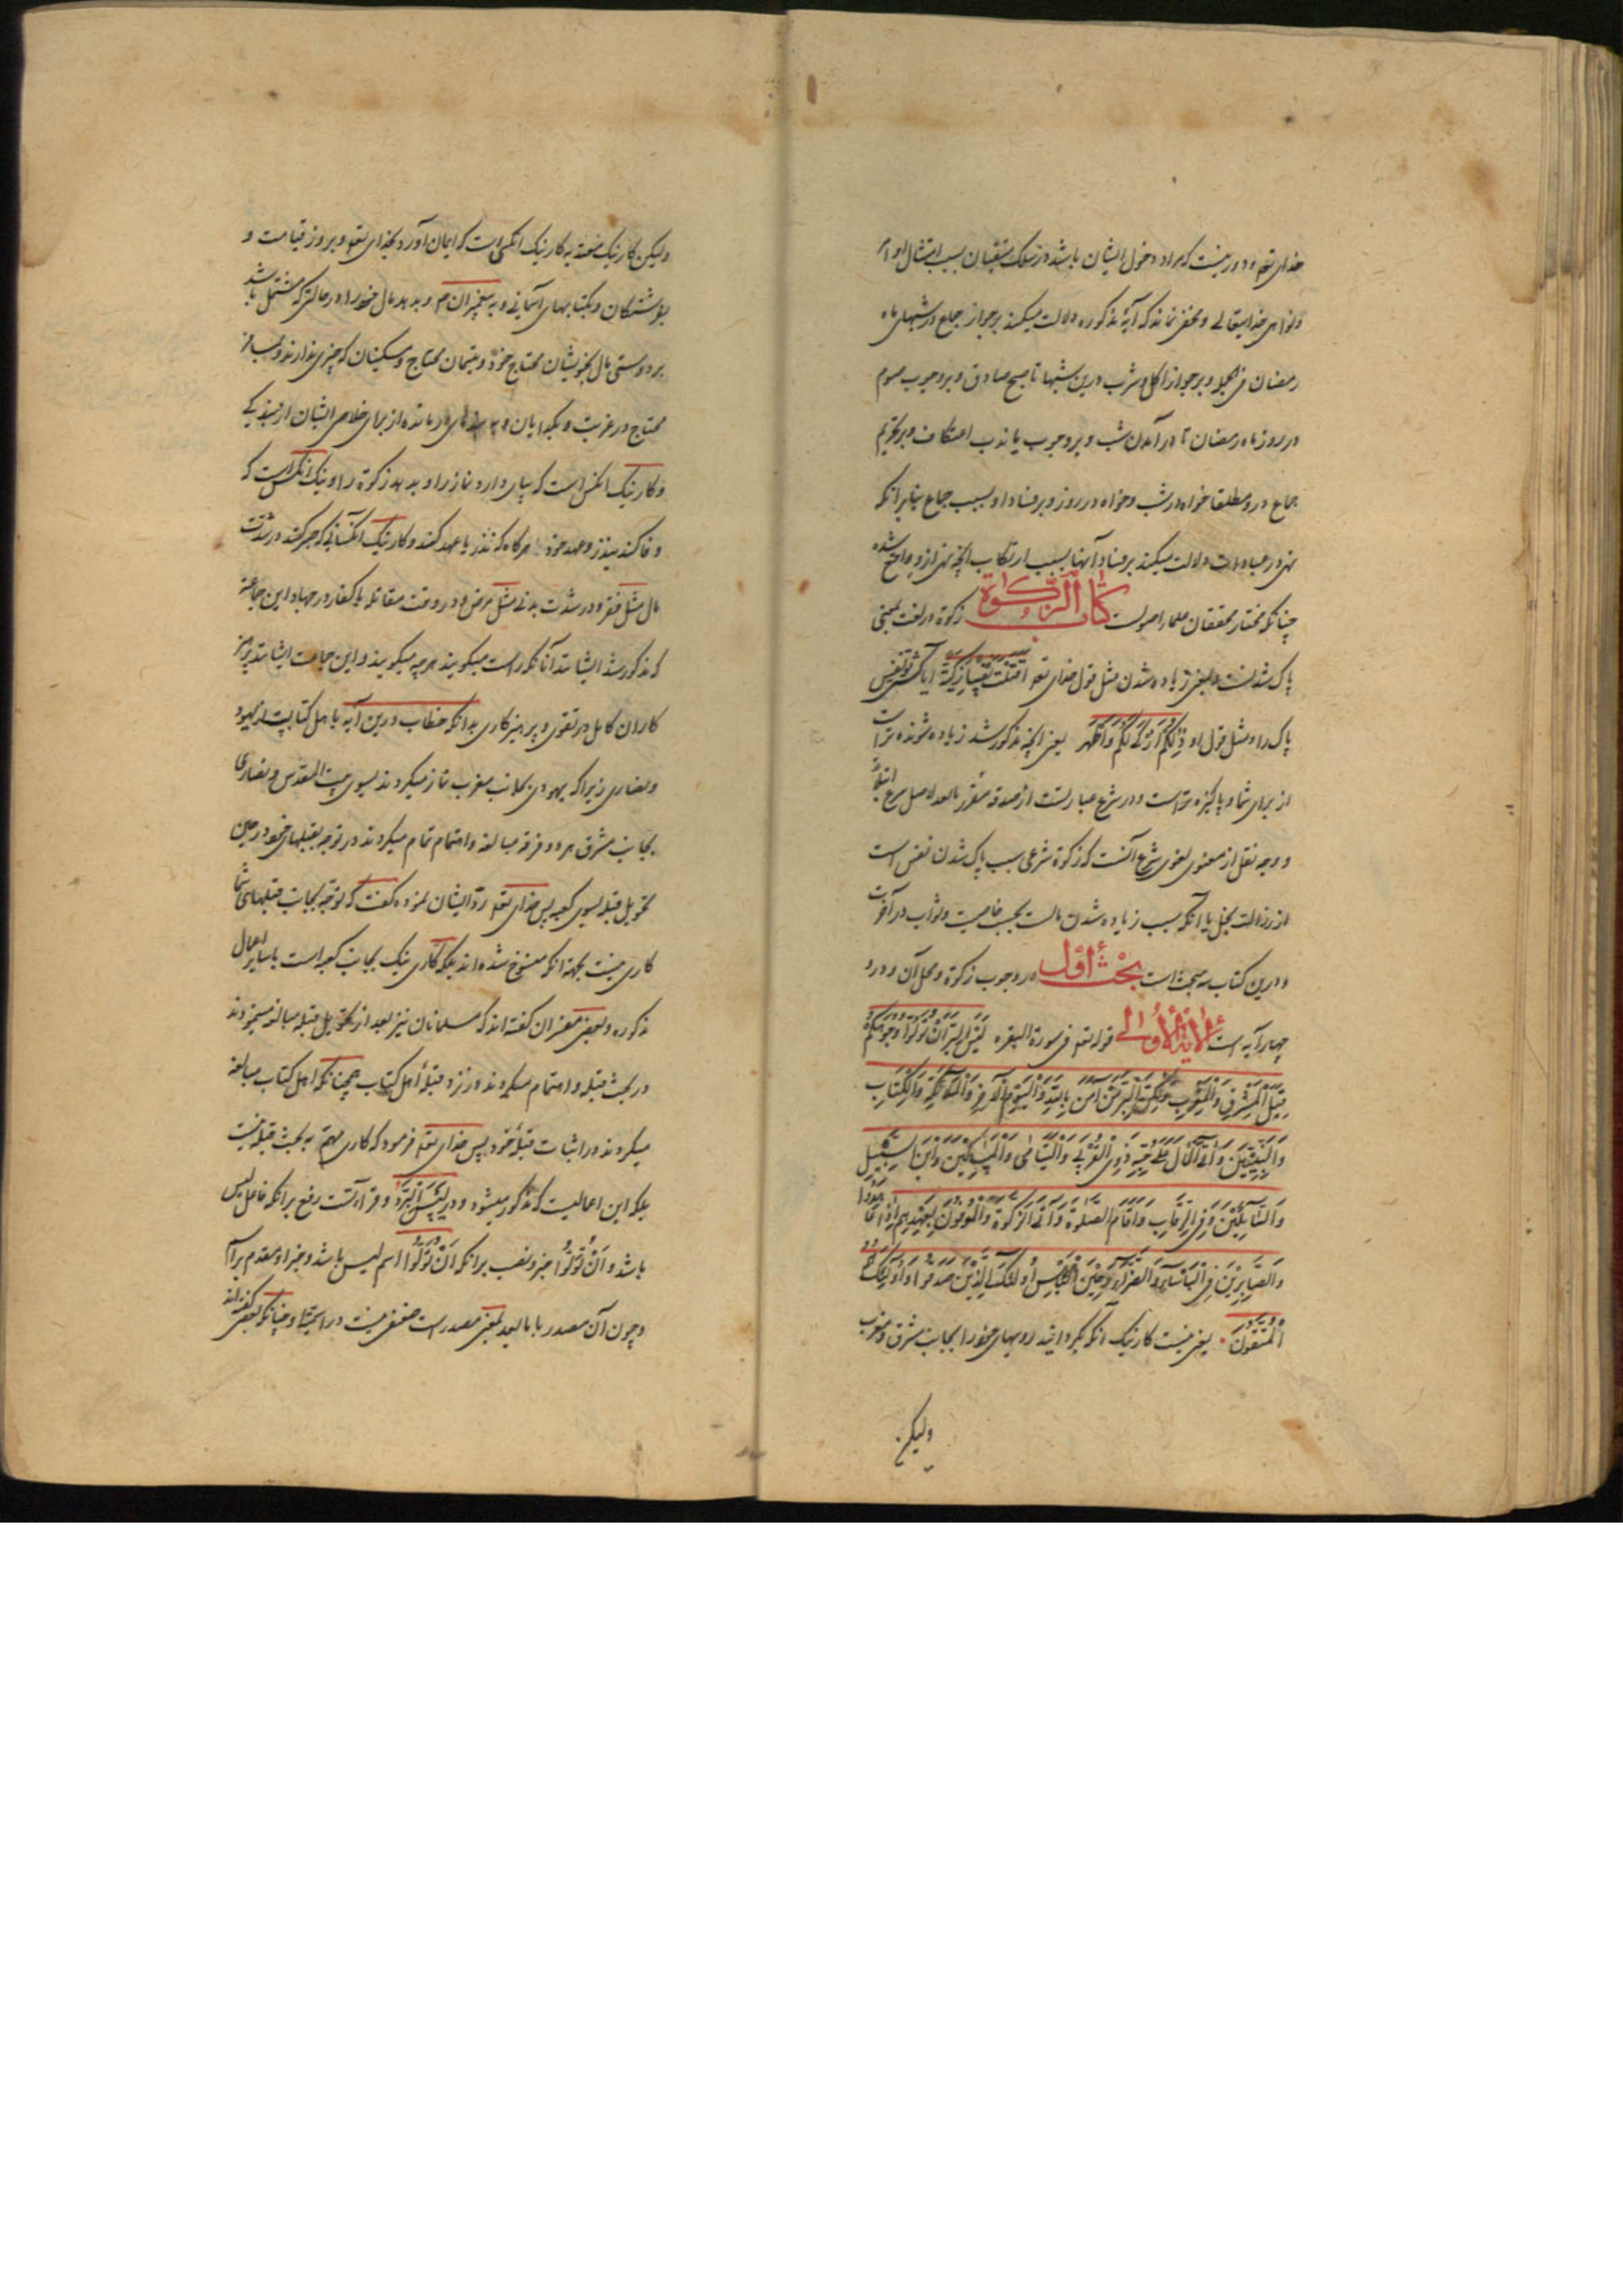 خدای تعه و دور نیست که مراد دخول ایشان باشد در سلک متقیان بسبب امتثال اوامر
و نواهی خدایتعالی و مخفی نماند که آیهٔ مذکوره دلالت میکند بر جواز جماع در شبهای ماه
رمضان فی الجمله و بر جواز اکل و شرب درین شبها تا صبح صادق و بر وجوب صوم
در روز ماه رمضان تا در آمدن شب و بر وجوب یا ندب اعتکاف و بر تحریم
جماع در و مطلقا خواه در شب و خواه در روز و بر فساد او بسبب جماع بنابر آنکه
نهی در عبادات دلالت میکند بر فساد آنها بسبب ارتکاب آنچه نهی ازو واقع شده
چنانکه مختار محققان علماء اصولست کتاب الزکوة زکوة در لغت بمعنی
پاک شدنست و بمعنی زیاده شدن مثل قول خدای تعه اقتلت نفسا زکیة ایا کشتی تو نفسی
پاک را و مثل قول او ذلکم ازکی لکم و اطهر یعنی آنچه مذکور شد زیاده شونده تراست
از برای شما و پاکیزه تراست و در شرع عبارتست از صدقه مقرر باصل شرع ابتداً
و وجه نقل از معنوی لغوی بشرع آنست که زکوة شرعی سبب پاک شدن نفس است
از رذالت بخل یا آنکه سبب زیاده شدن مالست بحسب خاصیت و ثواب در آخرت
و درین کتاب سه بحث است بحث اول در وجوب زکوة و محل آن و درو
چهار آیه است الآیة الاولی قوله تعه فی سورة البقره لیس البر ان تولوا وجوهکم
قبل المشرق والمغرب ولکن البر من آمن بالله والیوم الآخر والملائکة والکتاب
والنبیین وآتی المال علی حبه ذوی القربی والیتامی والمساکین وابن السبیل
والسائلین وفی الرقاب واقام الصلوة وآتی الزکوة والموفون بعهدهم اذا عاهدوا
والصابرین فی البأساء والضراء وحین البأس أولئک الذین صدقوا وأولئک هم
المتقون یعنی نیست کار نیک آنکه بگردانید رویهای خود را بجانب مشرق و مغرب
ولیکن
ولیکن کار نیک کار نیک آنکس است که ایمان آورد بخدای تعه و بروز قیامت و
بفرشتگان و بکتابهای آسمانی و به پیغمبران م و بدهد مال خود را در حالتی که مشتمل باشد
بر دوستی مال بخویشان محتاج خود و یتیمان محتاج و مسکینان که چیزی ندارند و مسافر
محتاج در غربت و بگدایان و درمانده از برای خلاصی ایشان از بندگی
و کار نیک آنکس است که بپای دارد نماز را و بدهد زکوة را و نیک آنکس است که
وفا کند بنذر و عهد خود هرگاه که نذر یا عهد کنند و کار نیک آنکسانی که صبر کنند در شدت
مال مثل فقر و در شدت بدنی مثل مرض و در وقت مقاتله با کفار در جهاد این جماعتی
که مذکور شد ایشانند آنانکه راست میگویند هر چه میگویند و این جماعت ایشانند پرهیز
کاران کامل در تقوی و پرهیزکاری بدانکه خطاب درین آیه باهل کتابست از یهود
و نصاری زیرا که یهود بجانب مغرب نماز میکردند بسوی بیت المقدس و نصاری
بجانب مشرق هر دو فرقه مبالغه و اهتمام تمام میکردند در توجه بقبلهای خود در حین
تحویل قبله بسوی کعبه پس خدای تعه رد ایشان نموده گفت که توجه بجانب قبلهای شما
کاری نیست بجهة آنکه منسوخ شده اند بلکه کار نیک بجانب کعبه است با سایر اعمال
مذکوره و بعضی مفسران گفته اند که مسلمانان نیز بعد از تحویل قبله مبالغه مینمودند
در بحث قبله و اهتمام میکردند در نزد قبلهٔ اهل کتاب همچنانکه اهل کتاب مبالغه
میکردند در اثبات قبلهٔ خود پس خدای تعه فرمود که کاری مهم نه بحث قبله نیست
بلکه این اعمالیست که مذکور میشود و در لیس البر دو قراءتست رفع بر آنکه فاعل لیس
باشد و ان تولوا خبر و نصب بر آنکه ان تولوا اسم لیس باشد و خبر او مقدم بر اسم
و چون آن مصدر با ما بعد بمعنی مصدر است ضعفی نیست در اسمیت او چنانکه بعضی گفته اند